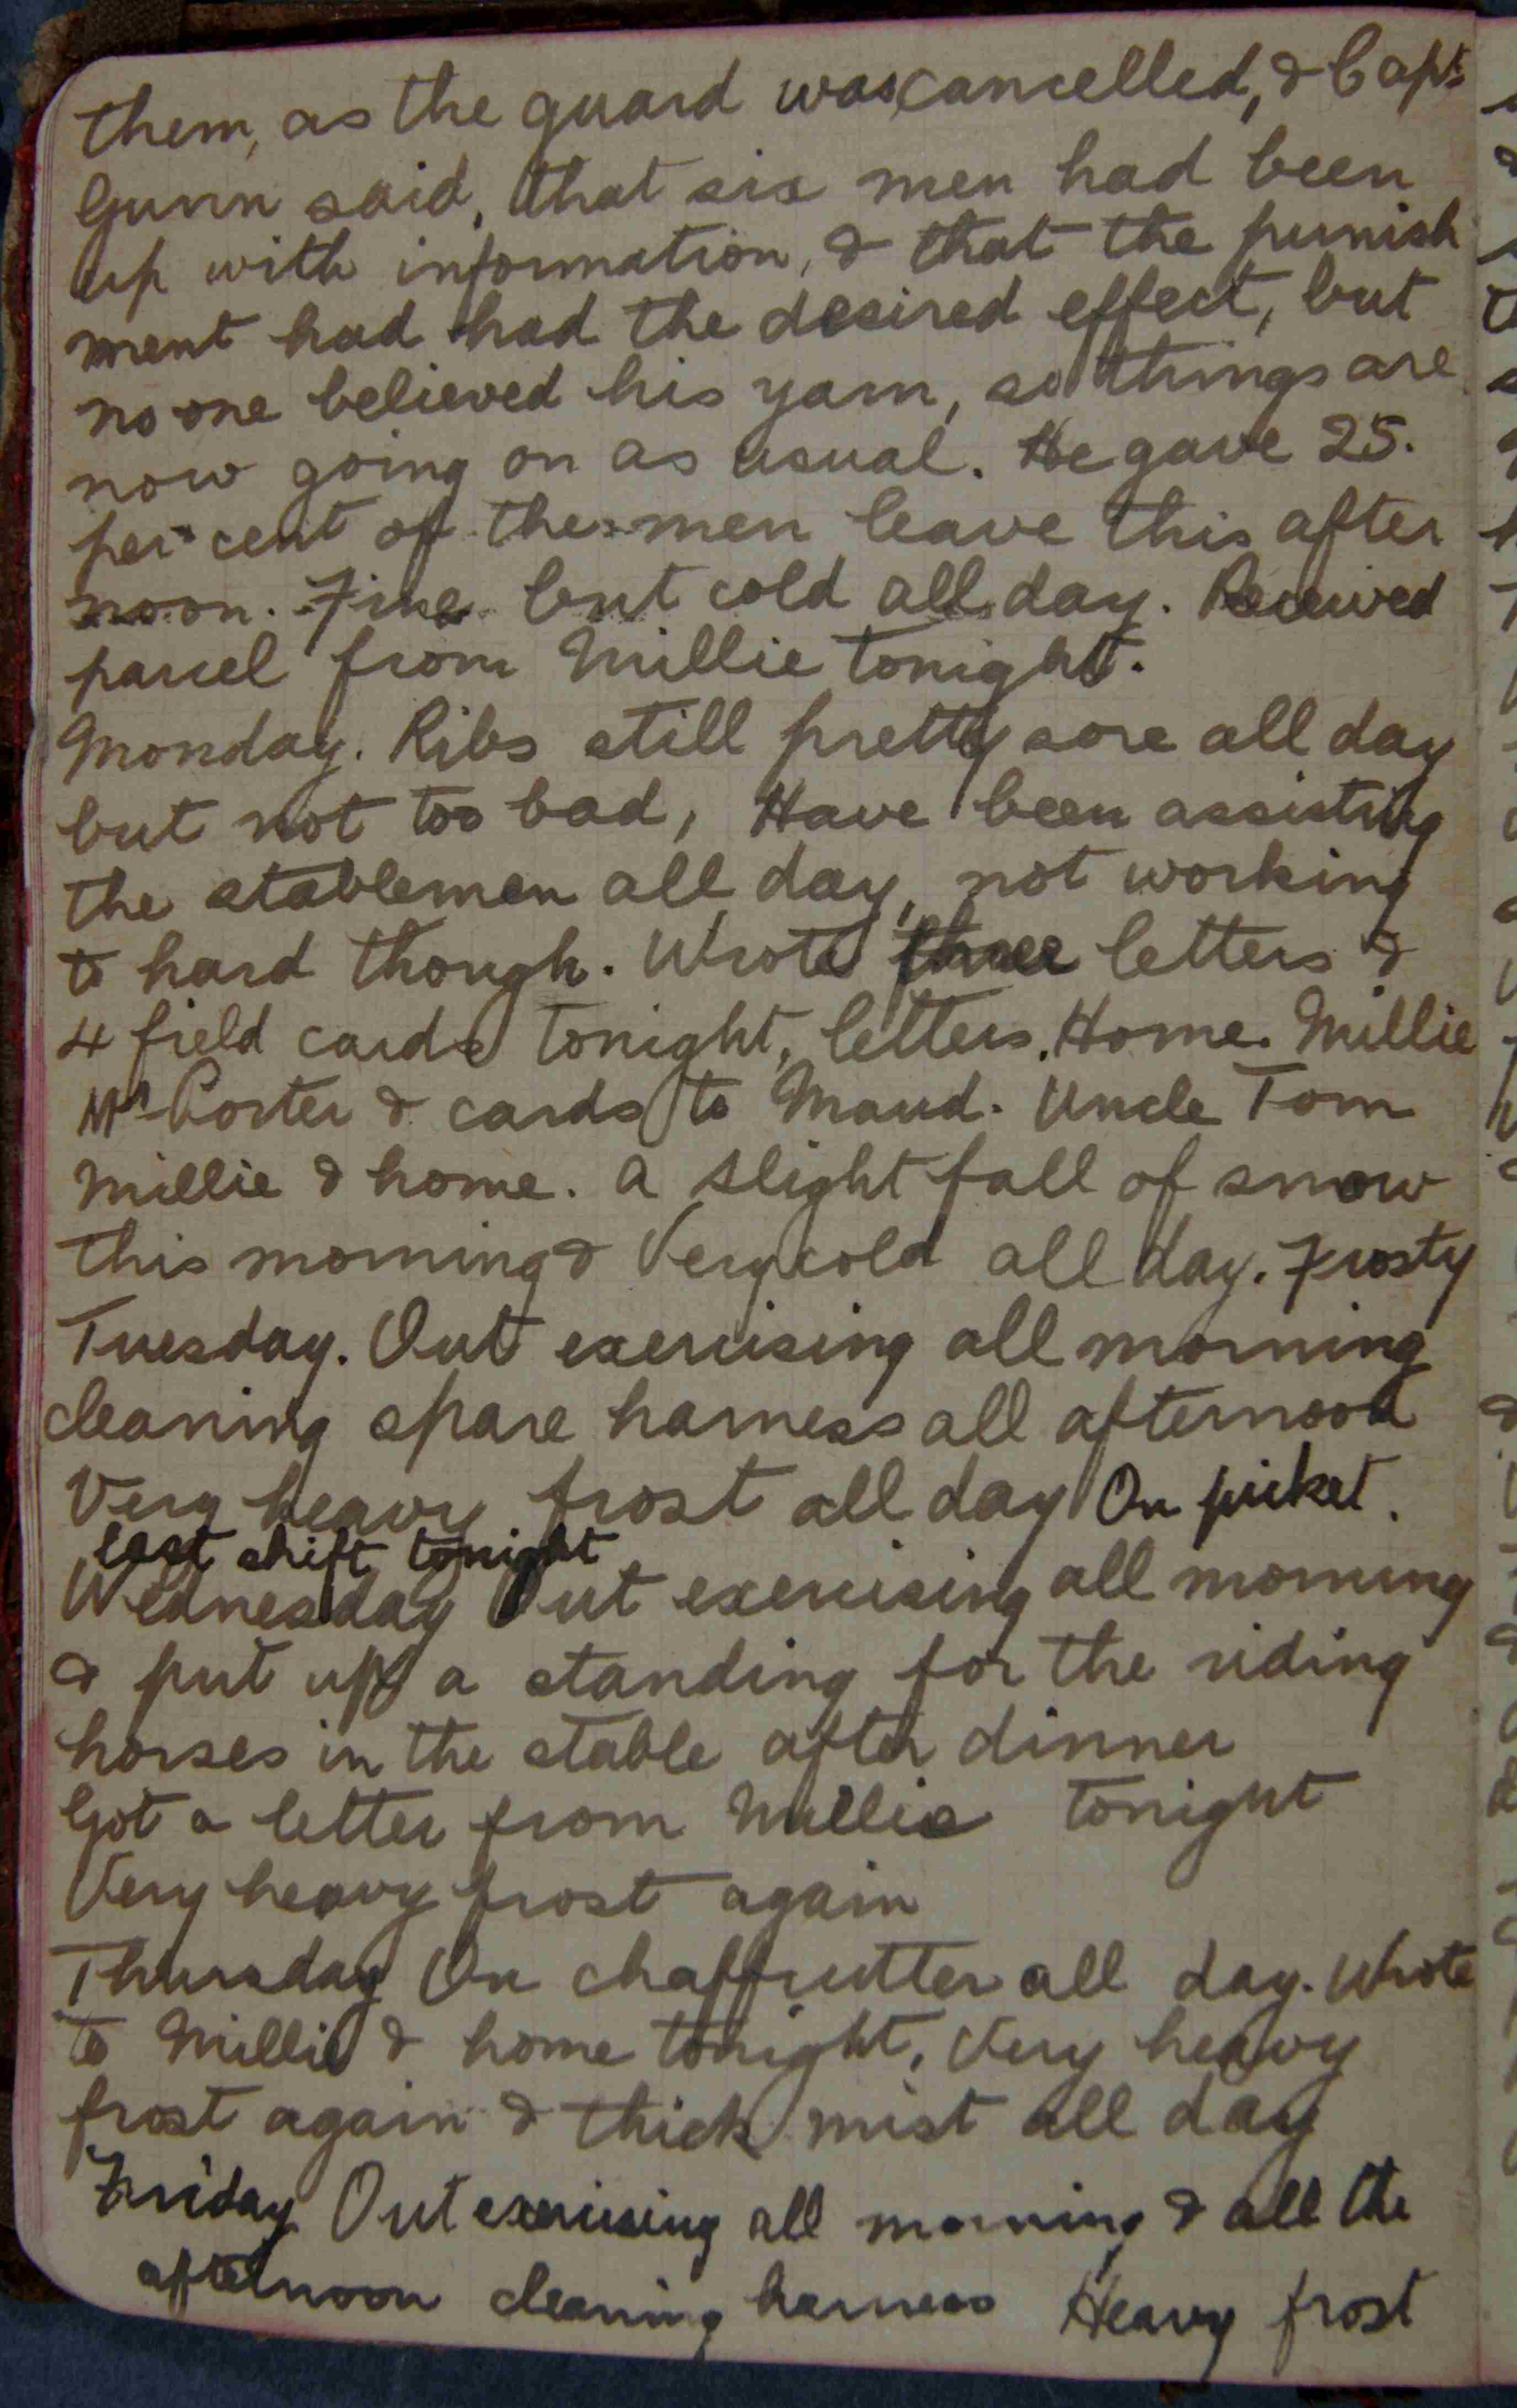 them, as the guard was cancelled, & Capt
Gunn said, that six men had been
up with information, & that the punish
ment had had the desired effect, but
no one believed his yarn, so things are
now going on as usual. He gave 25.
per cent of the men leave this after
noon. Fine but cold all day. Received
parcel from Millie tonight.
Monday. Ribs still pretty sore all day
but not too bad, Have been assisting
the stablemen all day, not working
to hard though. Wrote three letters &
4 field cards tonight, letters. Home. Millie
Mrs Porter & cards to Maud. Uncle Tom
Millie & home. A slight fall of snow
this morning & Very cold all day. Frosty
Tuesday. Out exercising all morning
cleaning spare harness all afternoon
Very heavy frost all day On picket.
last shift tonight
Wednesday Out exercising all morning
& put up a standing for the riding
horses in the stable after dinner
Got a letter from Millie tonight
Very heavy frost again
Thursday On chaffcutter all day. Wrote
to Millie & home tonight, Very heavy
frost again & thick mist all day
Friday Out exercising all morning & all the
afternoon cleaning harness Heavy frost